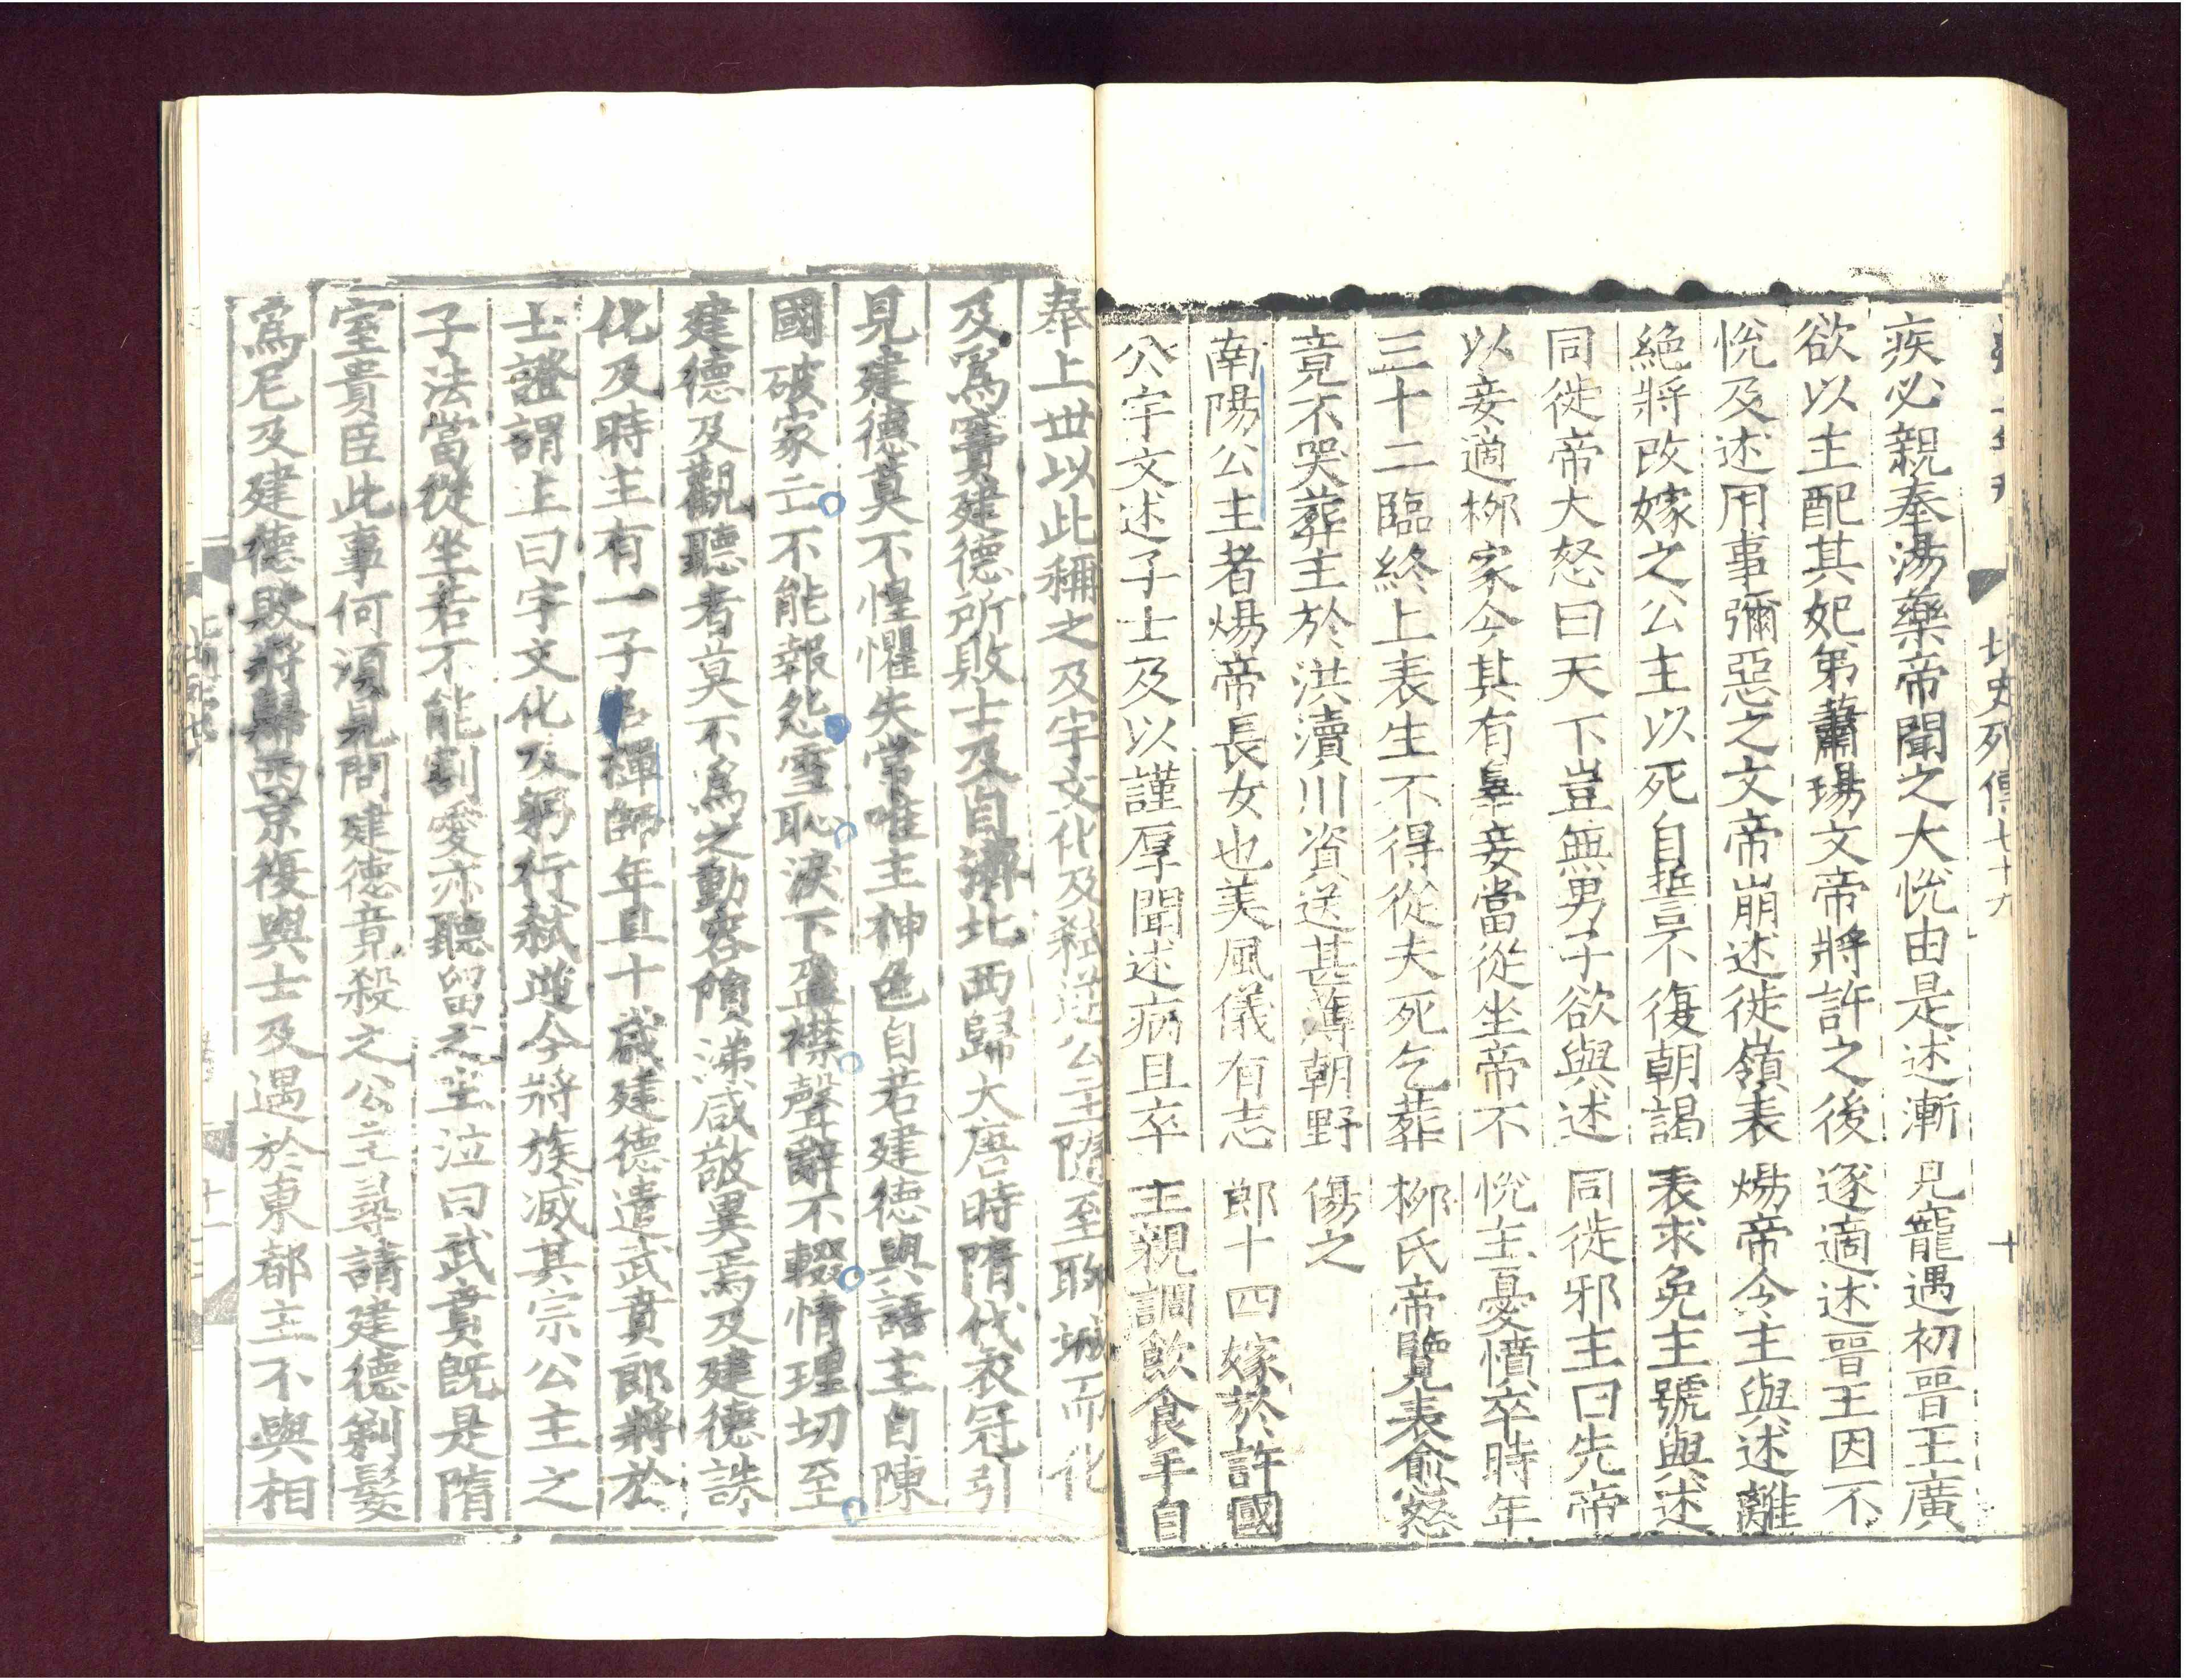 北史列傳七十九
十
疾必親奉湯藥帝聞之大悅由是述漸見寵遇初晉王廣
欲以主配其妃弟蕭瑒文帝將許之後遂適述晉王因不
悅及述用事彌惡之文帝崩述徙嶺表煬帝令主與述離
絕將改嫁之公主以死自誓不復朝謁表求免主號與述
同徙帝大怒曰天下豈無男子欲與述同徙邪主曰先帝
以妾適柳家今其有辠妾當從坐帝不悅主憂憤卒時年
三十二臨終上表生不得從夫死乞葬柳氏帝覽表愈怒
竟不哭葬主於洪瀆川資送甚薄朝野傷之
南陽公主者煬帝長女也美風儀有志節十四嫁於許國
公宇文述子士及以謹厚聞述病且卒主親調飲食手自
奉上世以此稱之及宇文化及弒逆公主隨至聊城而化
及爲竇建德所敗士及自濟北西歸大唐時隋代衣冠引
見建德莫不惶懼失常唯主神色自若建德與語主自陳
國破家亡不能報怨雪恥淚下盈襟聲辭不輟情理切至
建德及觀聽者莫不爲之動容隕涕咸敬異焉及建德誅
化及時主有一子名禪師年且十歲建德遣武賁郎將於
士證謂主曰宇文化及躬行弒逆今將族滅其宗公主之
子法當從坐若不能割愛亦聽留之主泣曰武賁既是隋
室貴臣此事何須見問建德竟殺之公主尋請建德剃髮
爲尼及建德敗將歸西京復與士及遇於東都主不與相
十一